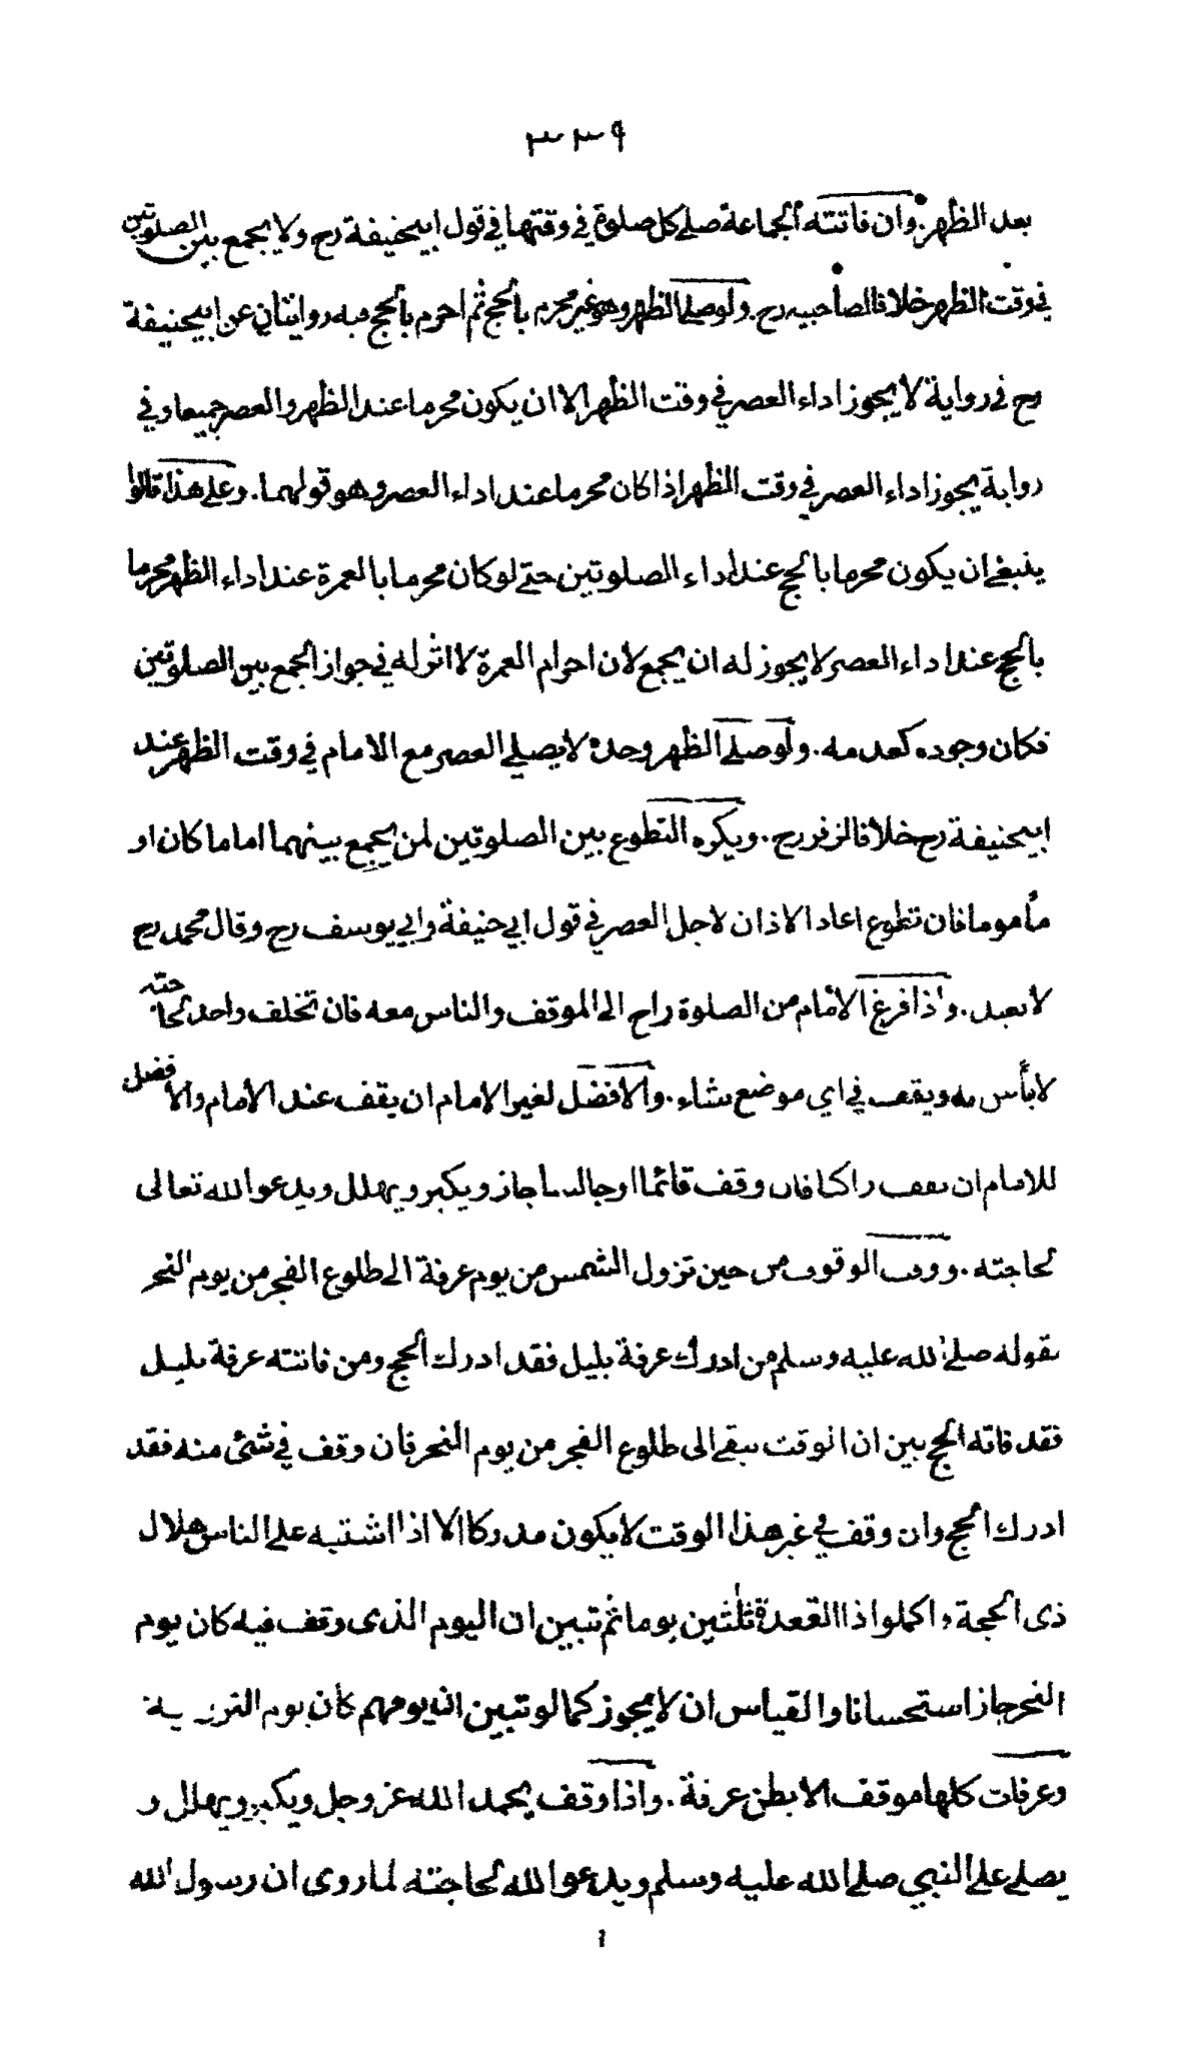 ٣٣٩
بعد الظهر. وان فاتته الجماعة صلى كل صلوة في وقتها في قول ابيحنيفة رح ولا يجمع بين الصلوتين
في وقت الظهر خلافا لصاحبيه رح. ولو صلى الظهر وهو غير محرم بالحج ثم احرم بالحج فيه روايتان عن ابيحنيفة
رح في رواية لا يجوز اداء العصر في وقت الظهر الا ان يكون محرما عند الظهر والعصر جميعا وفي
رواية يجوز اداء العصر في وقت الظهر اذا كان محرما عند اداء العصر وهو قولهما. وعلى هذا قالوا
ينبغي ان يكون محرما بالحج عند اداء الصلوتين حتى لو كان محرما بالعمرة عند اداء الظهر محرما
بالحج عند اداء العصر لا يجوز له ان يجمع لان احرام العمرة لا اثر له في جواز الجمع بين الصلوتين
فكان وجوده كعدمه. ولو صلى الظهر وحده لا يصلي العصر مع الامام في وقت الظهر عند
ابيحنيفة رح خلافا لزفر رح. ويكره التطوع بين الصلوتين لمن يجمع بينهما اماما كان او
مأموما فان تطوع اعاد الاذان لاجل العصر في قول ابي حنيفة وابي يوسف رح وقال محمد رح
لا يعيد. واذا فرغ الامام من الصلوة راح الى الموقف والناس معه فان تخلف واحد لحاجته
لا بأس به ويقف في اي موضع شاء. والافضل لغير الامام ان يقف عند الامام والافضل
للامام ان يقف راكبا فان وقف قائما او جالسا جاز ويكبر ويهلل ويدعو الله تعالى
لحاجته. ووقت الوقوف من حين تزول الشمس من يوم عرفة الى طلوع الفجر من يوم النحر
بقوله صلى الله عليه وسلم من ادرك عرفة بليل فقد ادرك الحج ومن فاتته عرفة بليل
فقد فاته الحج بين ان الوقت يبقى الى طلوع الفجر من يوم النحر فان وقف في شئ منه فقد
ادرك الحج وان وقف في غير هذا الوقت لا يكون مدركا الا اذا اشتبه على الناس هلال
ذى الحجة واكملوا ذا القعدة ثلثين يوما ثم تبين ان اليوم الذى وقف فيه كان يوم
النحر جاز استحسانا والقياس ان لا يجوز كما لو تبين انه يومهم كان يوم التروية
وعرفات كلها موقف الا بطن عرفة. واذا وقف يحمد الله عز وجل ويكبر ويهلل و
يصلي على النبي صلى الله عليه وسلم ويدعو الله لحاجته لما روى ان رسول الله